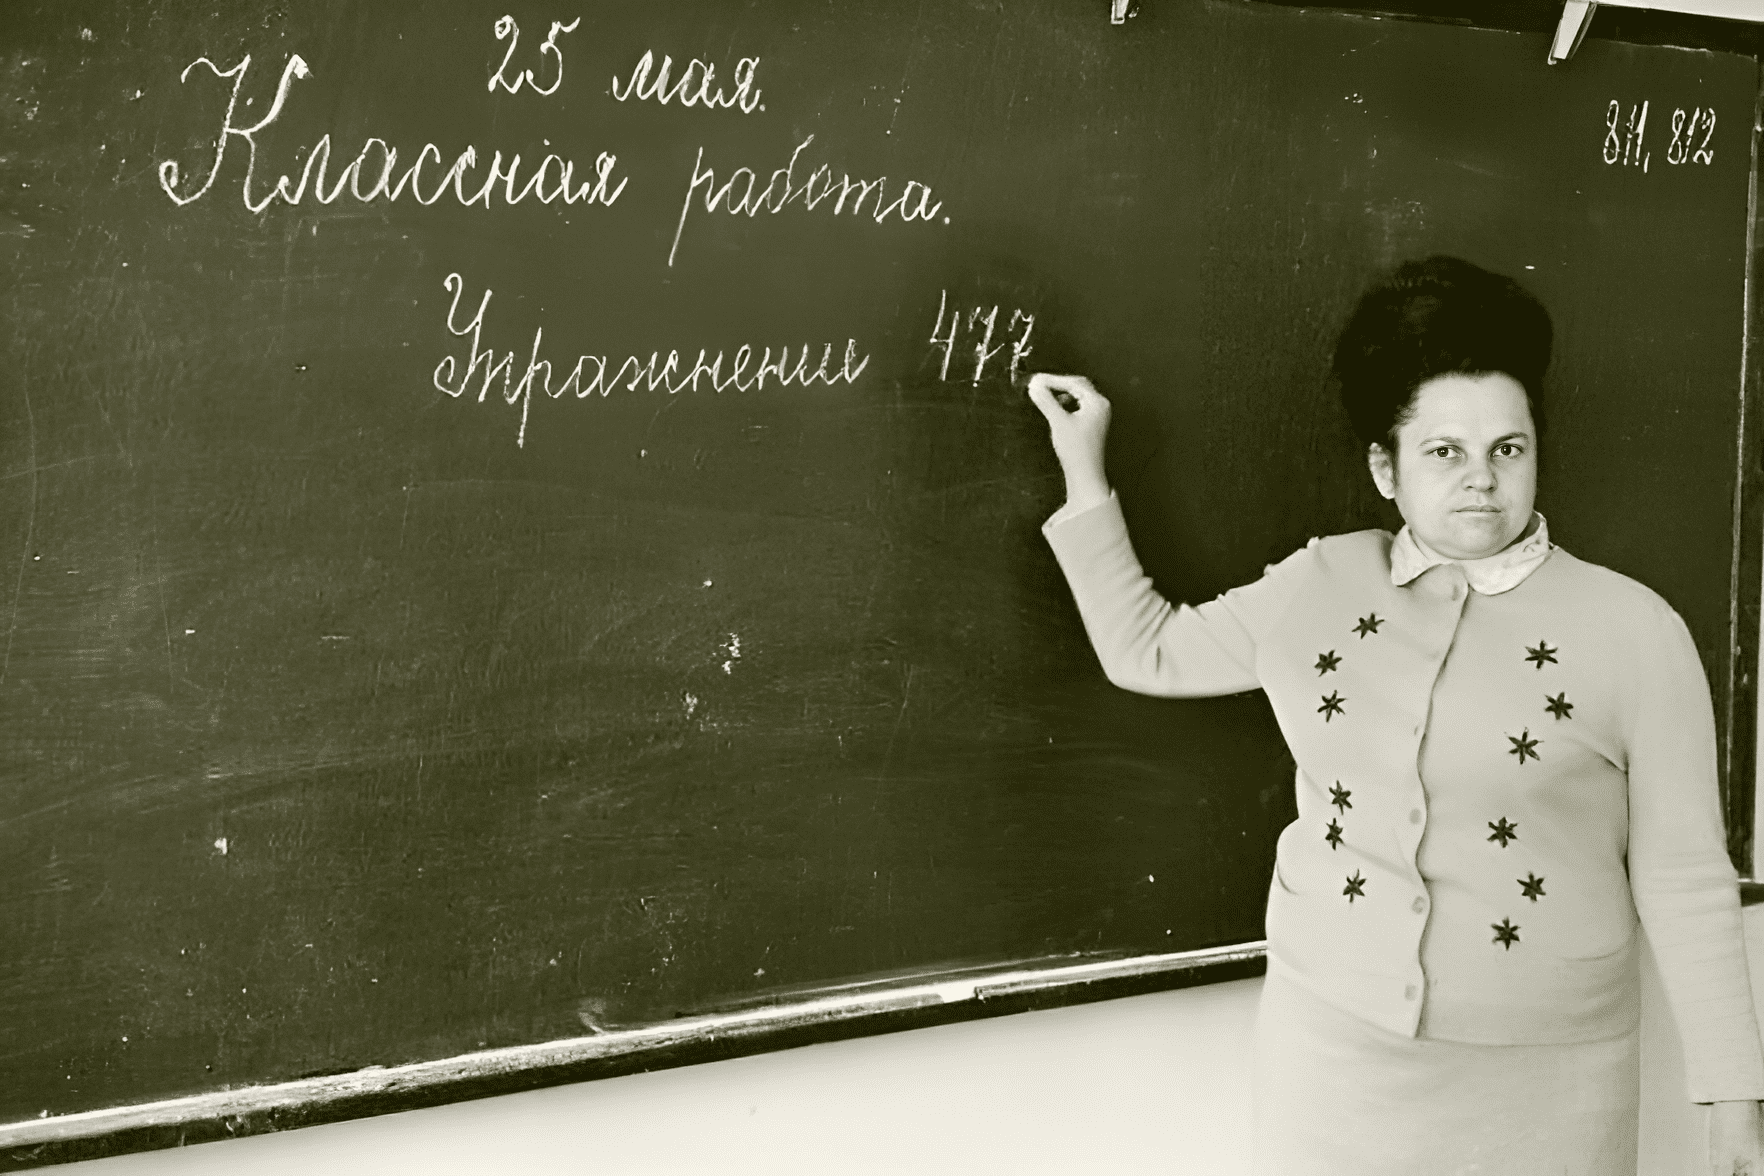 25 мая.
Классная работа.
Упражнение 477
811, 812